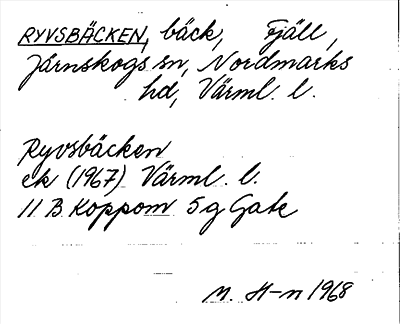 RYVSBÄCKEN, bäck, Fjäll,
Järnskogs sn, Nordmarks
hd, Värml. l.
Ryvsbäcken
ek (1967) Värml. l.
11 B Koppom 5 g Gate
M. H-n 1968